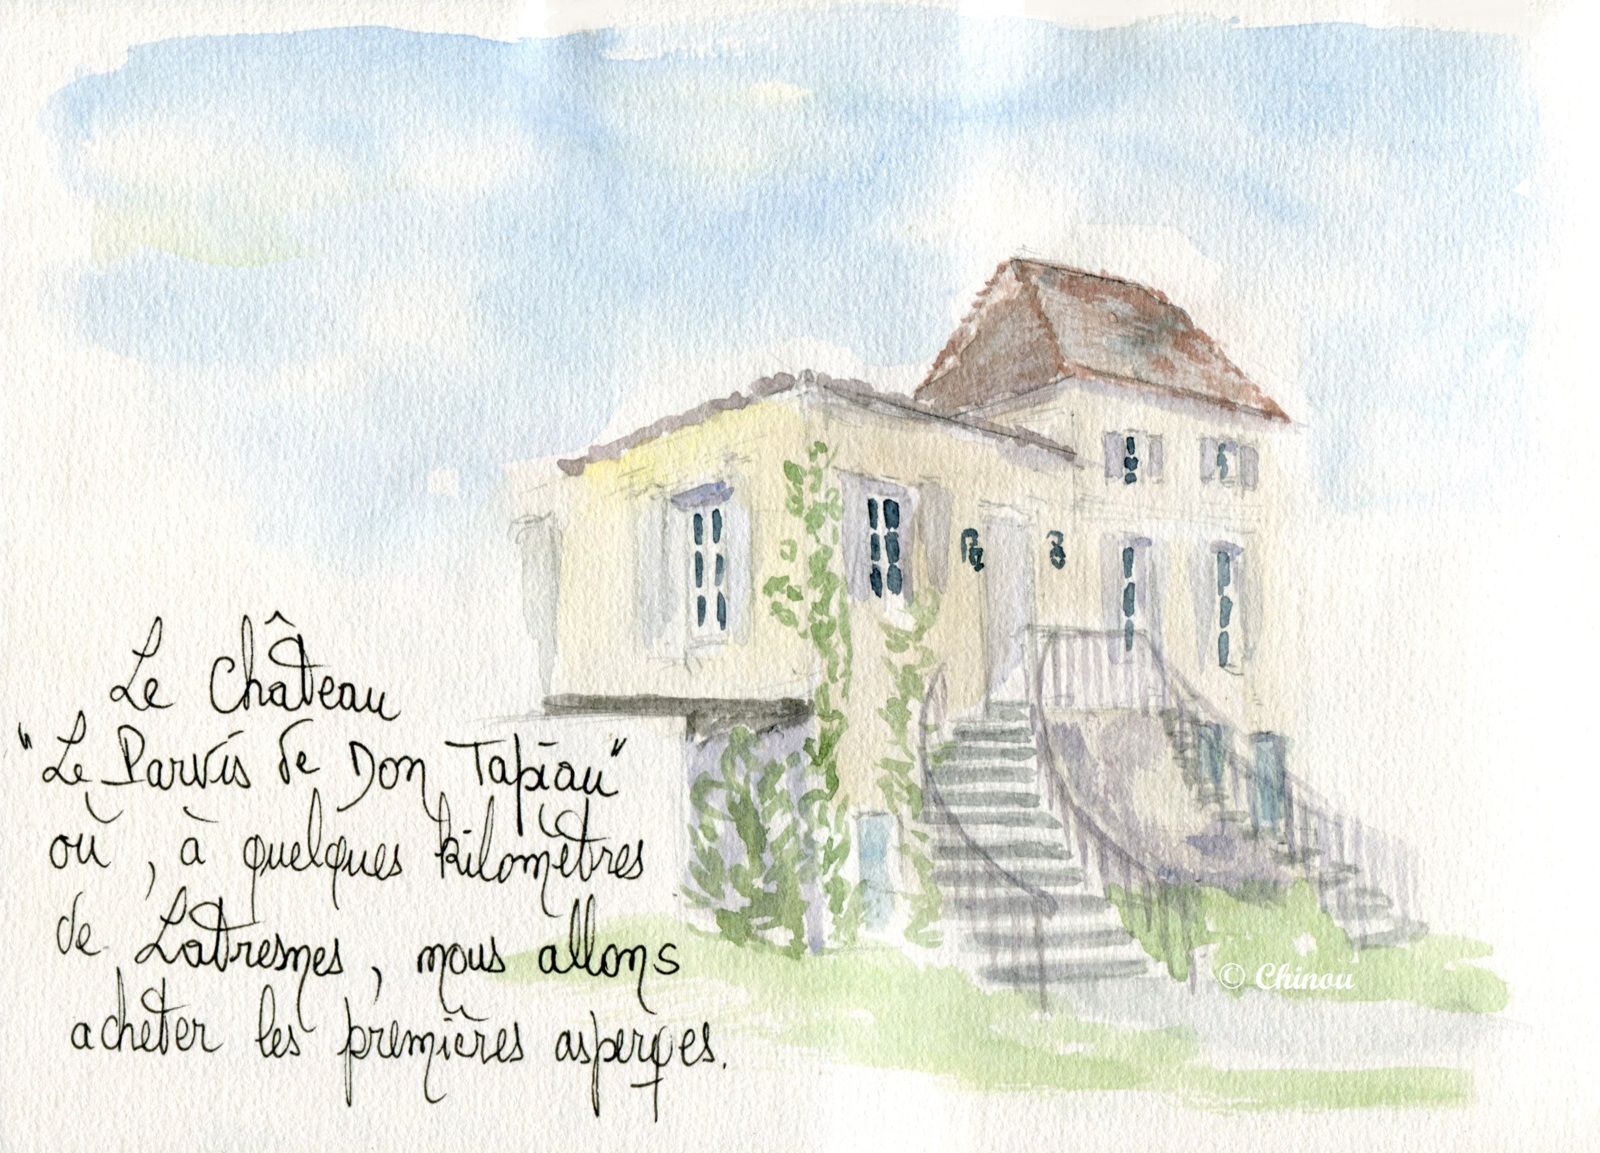 Le Château
"Le Parvis de Don Tapiau"
où, à quelques kilomètres
de Latresnes, nous allons
acheter les premières asperges.
© Chinou